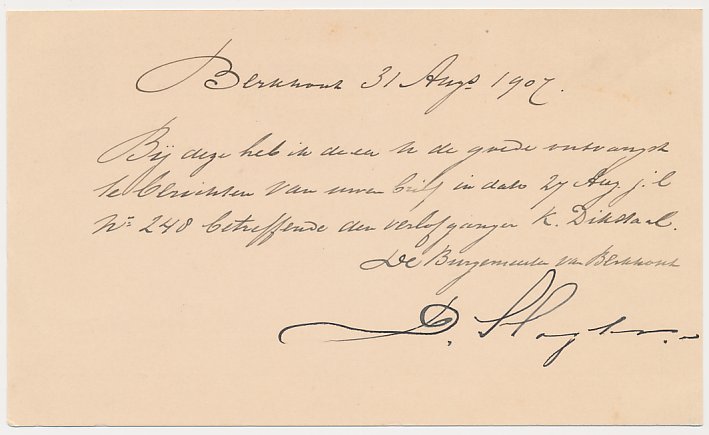 Berkhout 31 Augs 1907.
Bij deze heb ik de eer U de goede ontvangst
te berichten van uwen brief in dato 27 Aug j.l
No 248 betreffende den verlofganger K. Dikstaal.
De Burgemeester van Berkhout
D.